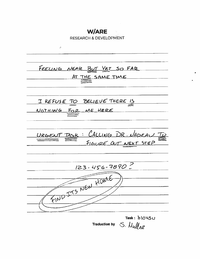 W/ARE
RESEARCH & DEVELOPMENT
FEELING NEAR BUT YET SO FAR
AT THE SAME TIME
I REFUSE TO BELIEVE THERE IS
NOTHING FOR ME HERE
URGENT TASK : CALLING DR. MOREAU TO
FIGURE OUT NEXT STEP
123-456-7890?
FIND ITS NEW HOME
Task :
Traduction by S. Muller